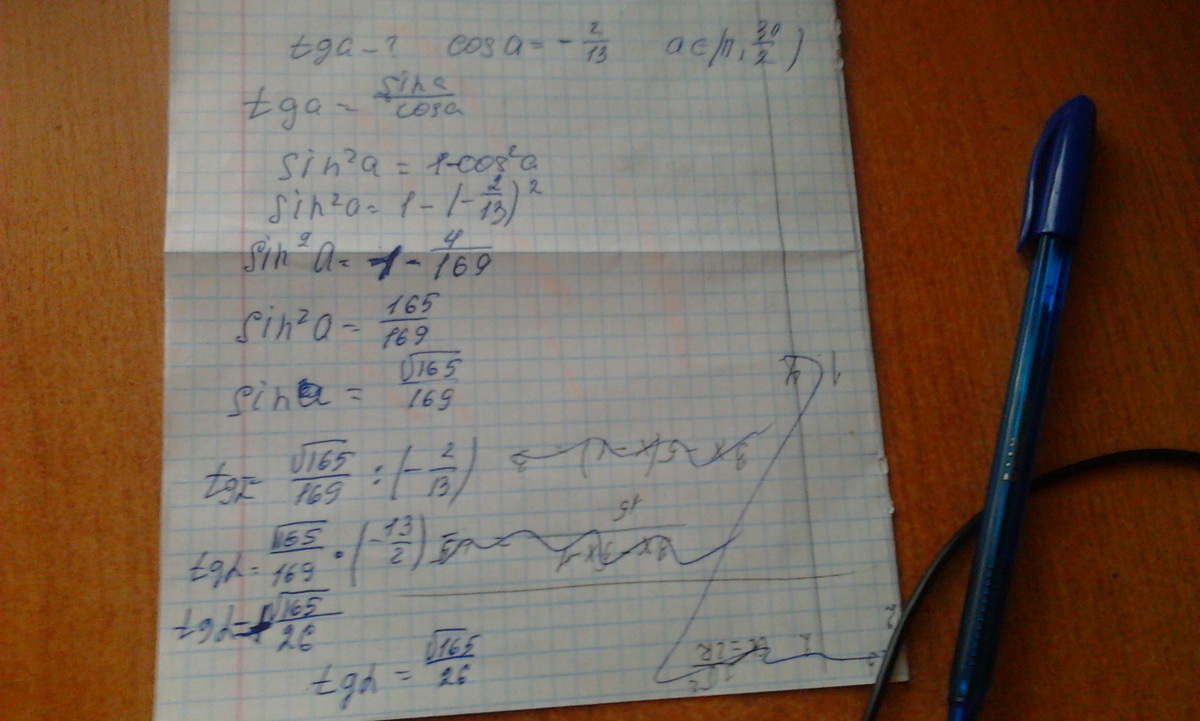 tg a - ? cos a = - 2/13 a ∈ (π, 3π/2)
tg a = sin a / cos a
sin²a = 1 - cos²a
sin²a = 1 - (- 2/13)²
sin²a = 1 - 4/169
sin²a = 165/169
sin a = √165/169
tg α = √165/169 : (- 2/13)
tg α = √165/169 · (- 13/2)
tg α = √165/26
tg α = √165/26